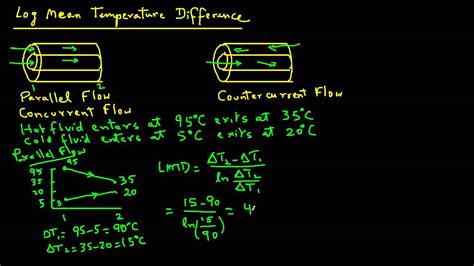 Log Mean Temperature Difference
1 2
Parallel Flow
Concurrent Flow
Countercurrent Flow
Hot fluid enters at 95°C exits at 35°C
Cold fluid enters at 5°C exits at 20°C
Parallel Flow
95
95
35
25
15
5
5
35
20
1 2
ΔT₁ = 95-5 = 90°C
ΔT₂ = 35-20 = 15°C
LMTD = ΔT₂ - ΔT₁
ln ΔT₂
ΔT₁
= 15-90
ln(15
90) = 4